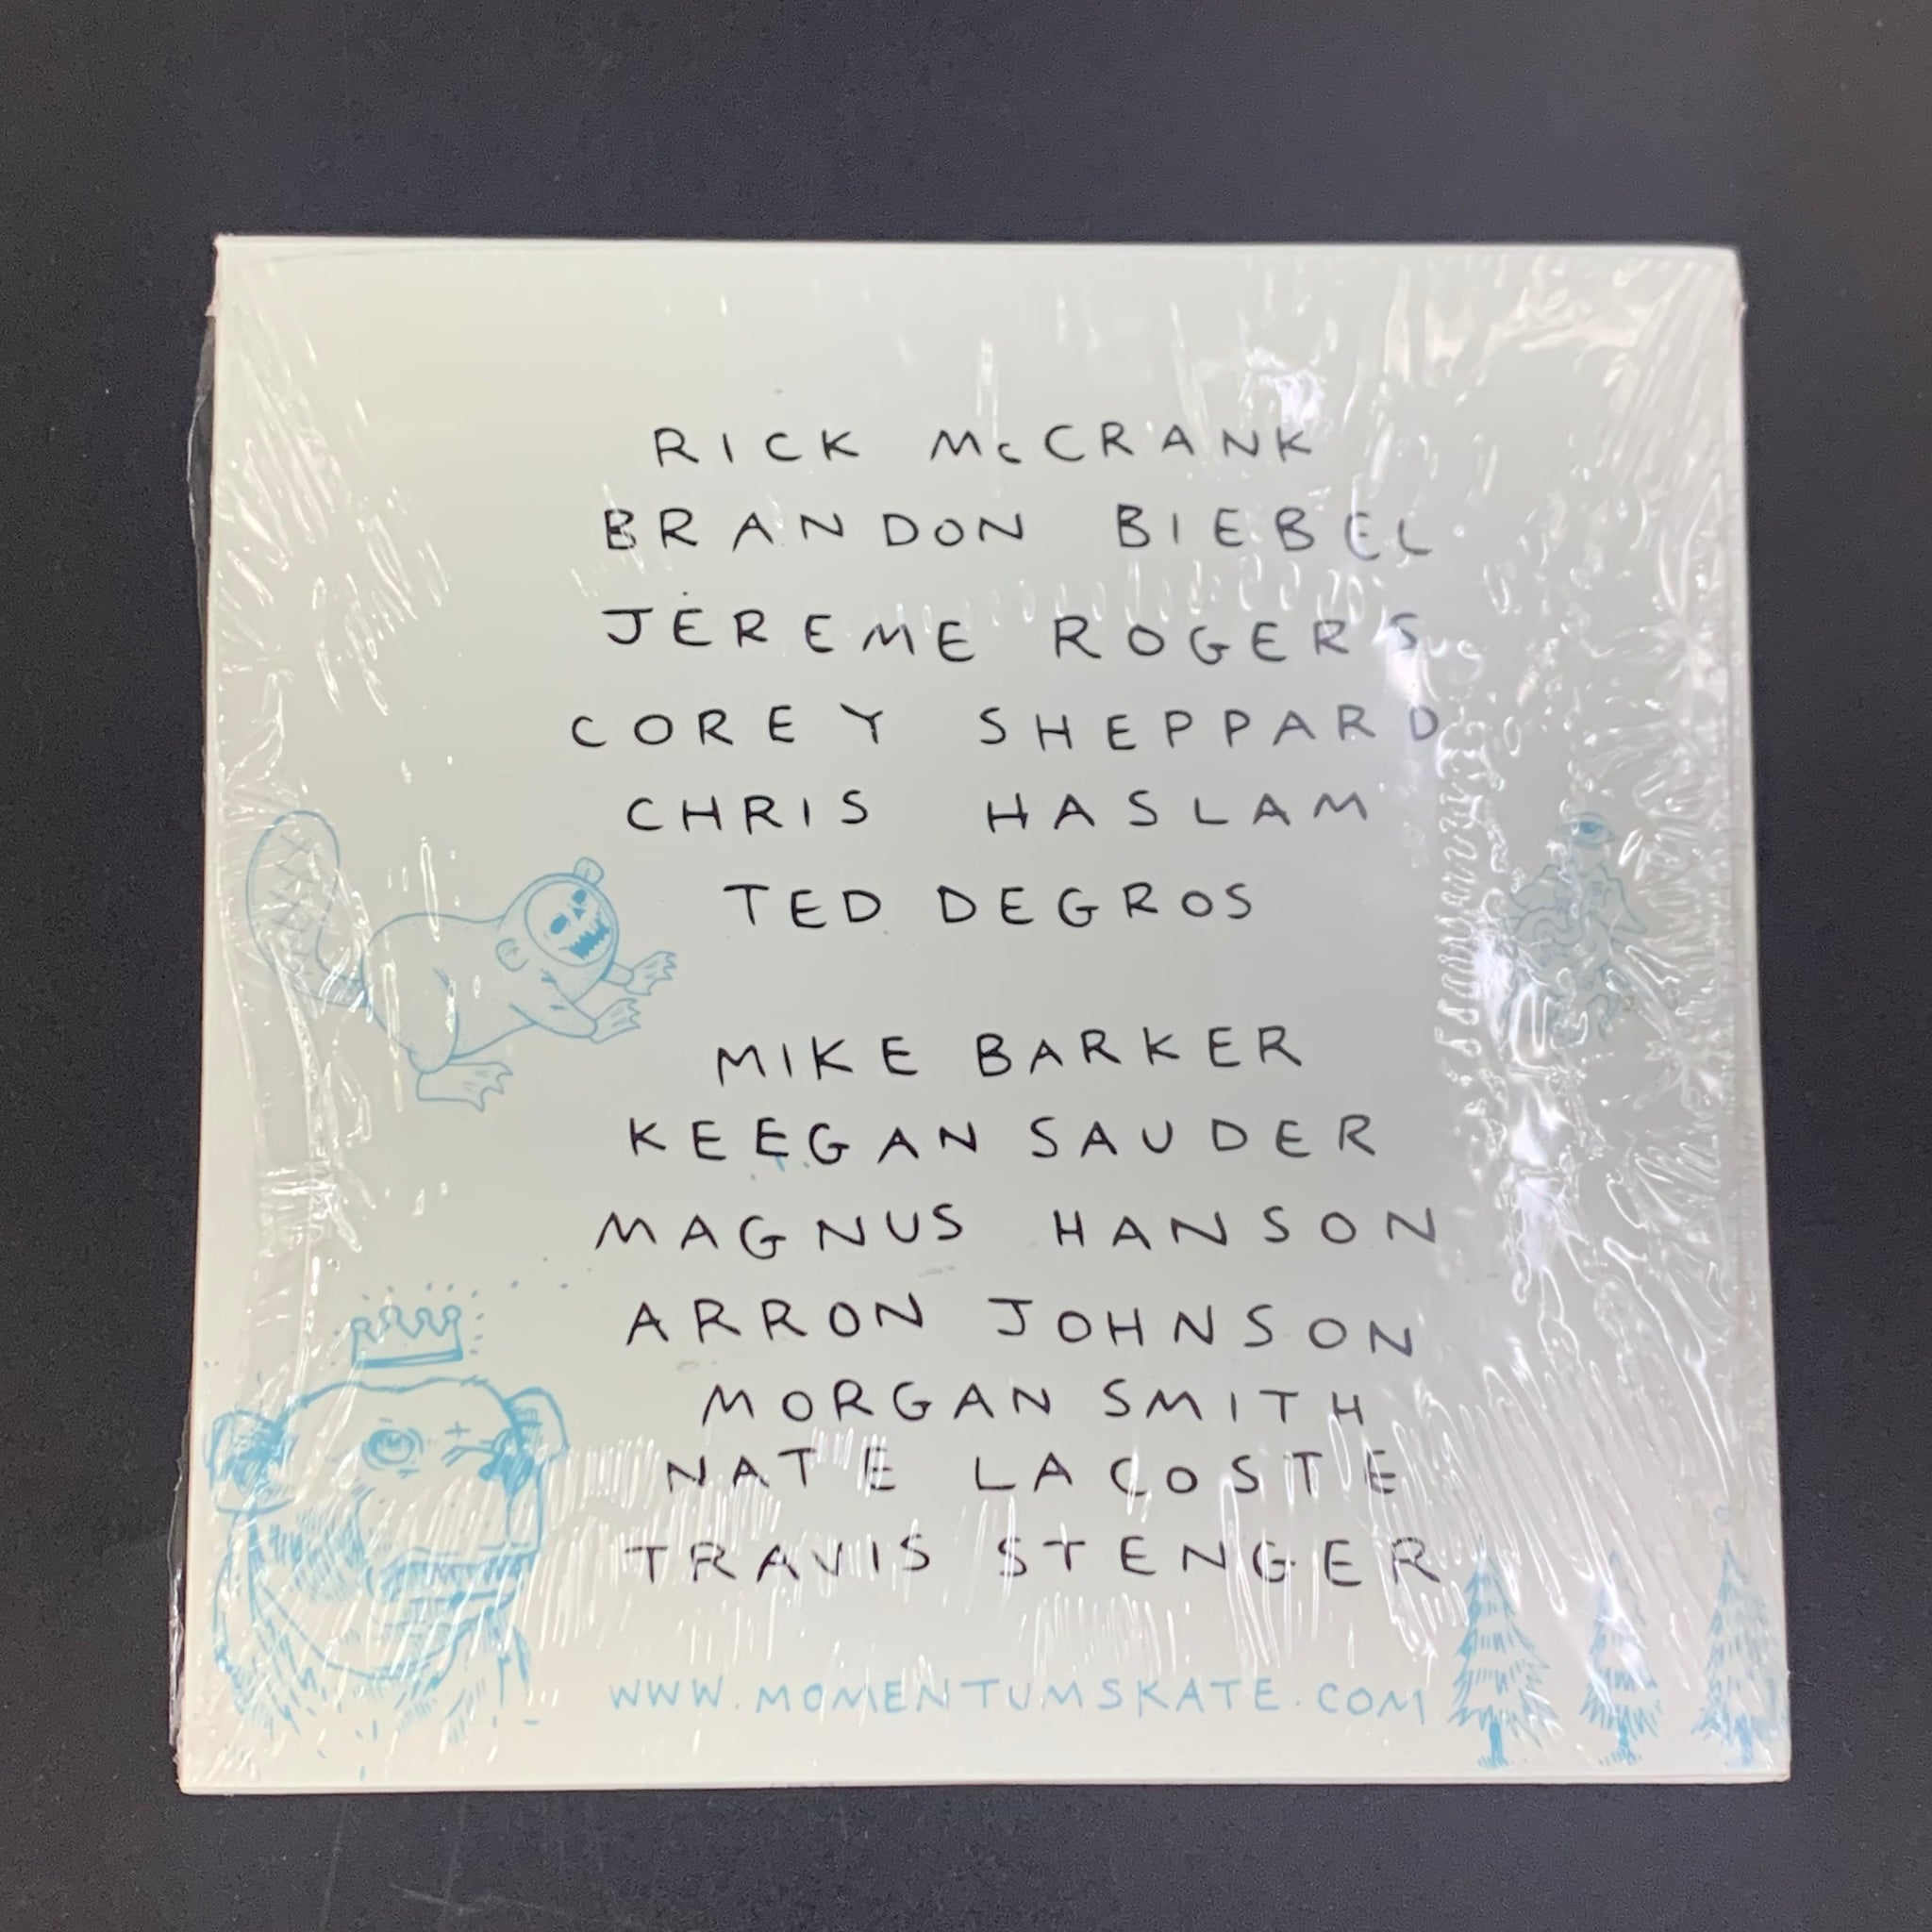 RICK McCRANK
BRANDON BIEBEL
JEREME ROGERS
COREY SHEPPARD
CHRIS HASLAM
TED DEGROS
MIKE BARKER
KEEGAN SAUDER
MAGNUS HANSON
ARRON JOHNSON
MORGAN SMITH
NATE LACOSTE
TRAVIS STENGER
WWW.MOMENTUMSKATE.COM